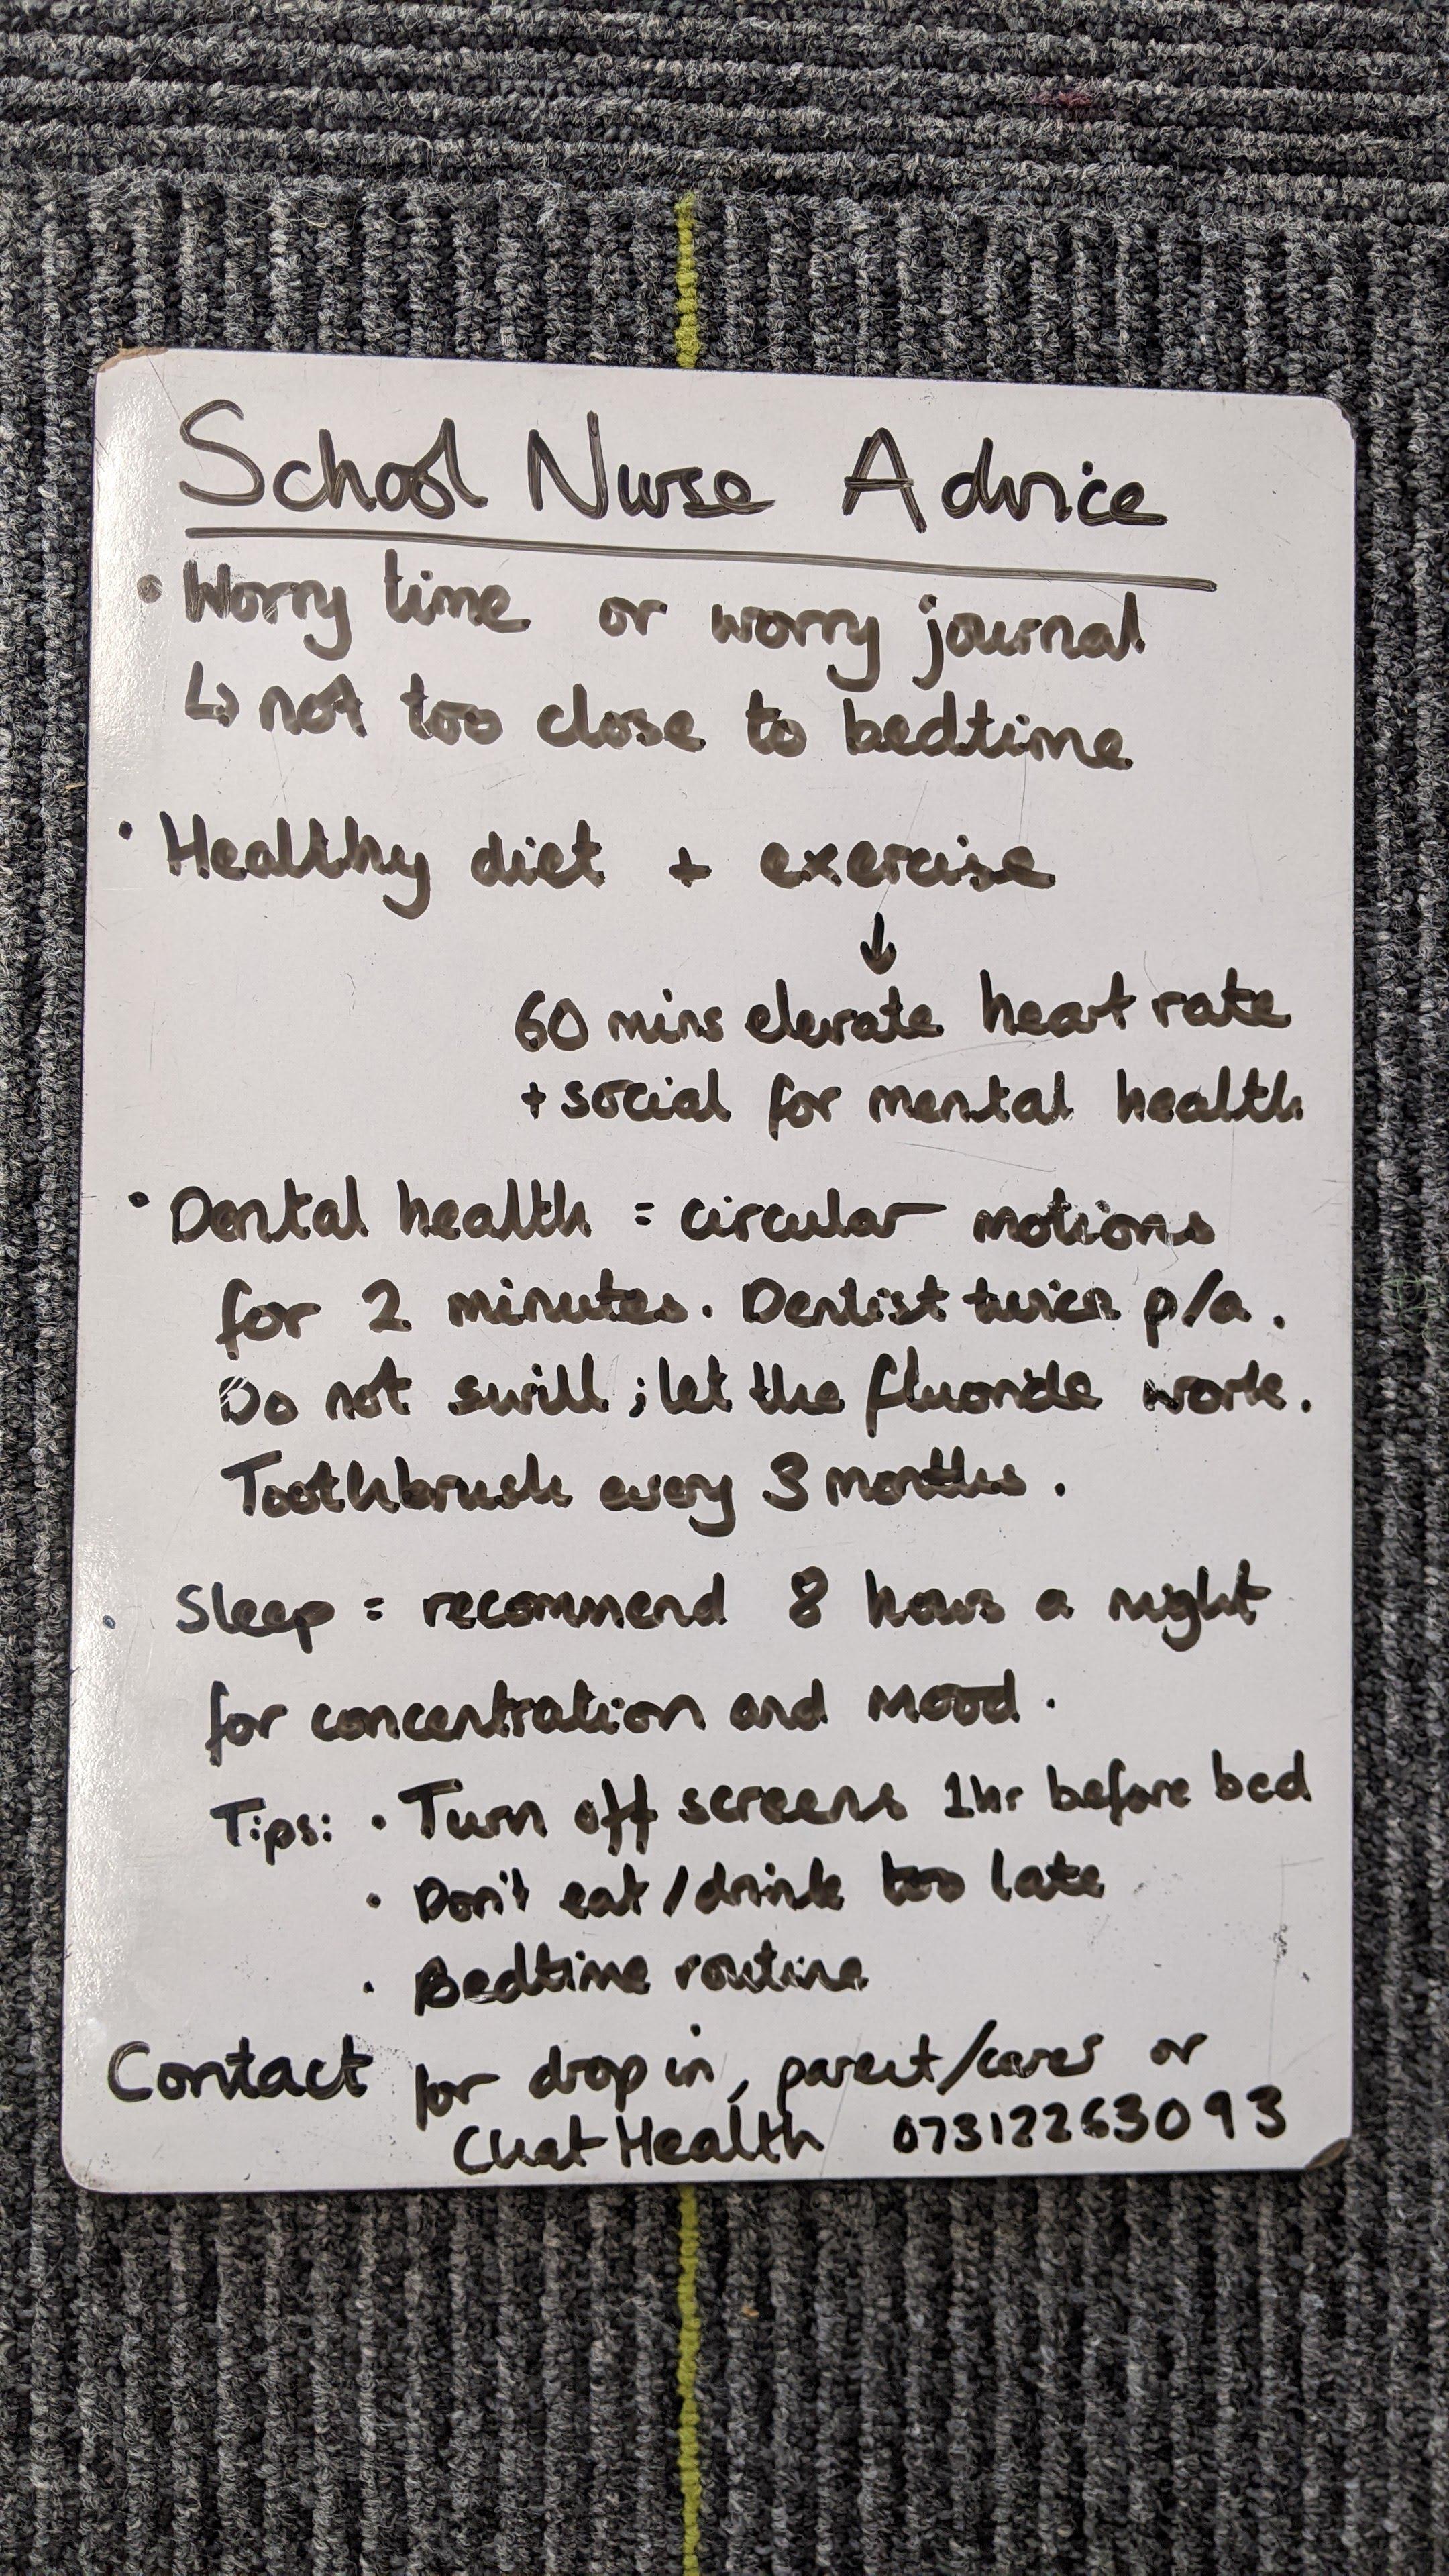 School Nurse Advice
• Worry time or worry journal
↳ not too close to bedtime
• Healthy diet + exercise
↓
60 mins elevate heart rate
+ social for mental health
• Dental health = circular motions
for 2 minutes. Dentist twice p/a.
Do not swill; let the fluoride work.
Toothbrush every 3 months.
• Sleep = recommend 8 hours a night
for concentration and mood.
Tips: • Turn off screens 1hr before bed
• Don't eat/drink too late
• Bedtime routine
Contact for drop in, parent/carer or
Chat Health 07312263093